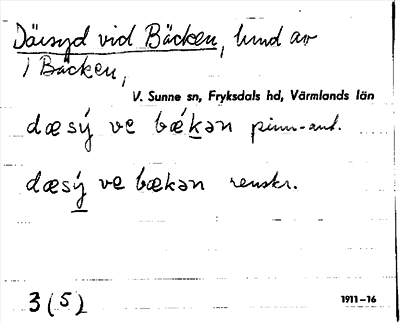 Däisyd vid Bäcken, hmd av
1 Bäcken,
V. Sunne sn, Fryksdals hd, Värmlands län
dæsý ve bǽkən pinn-ant.
dæsý ve bækən renskr.
3 (5)
1911–16